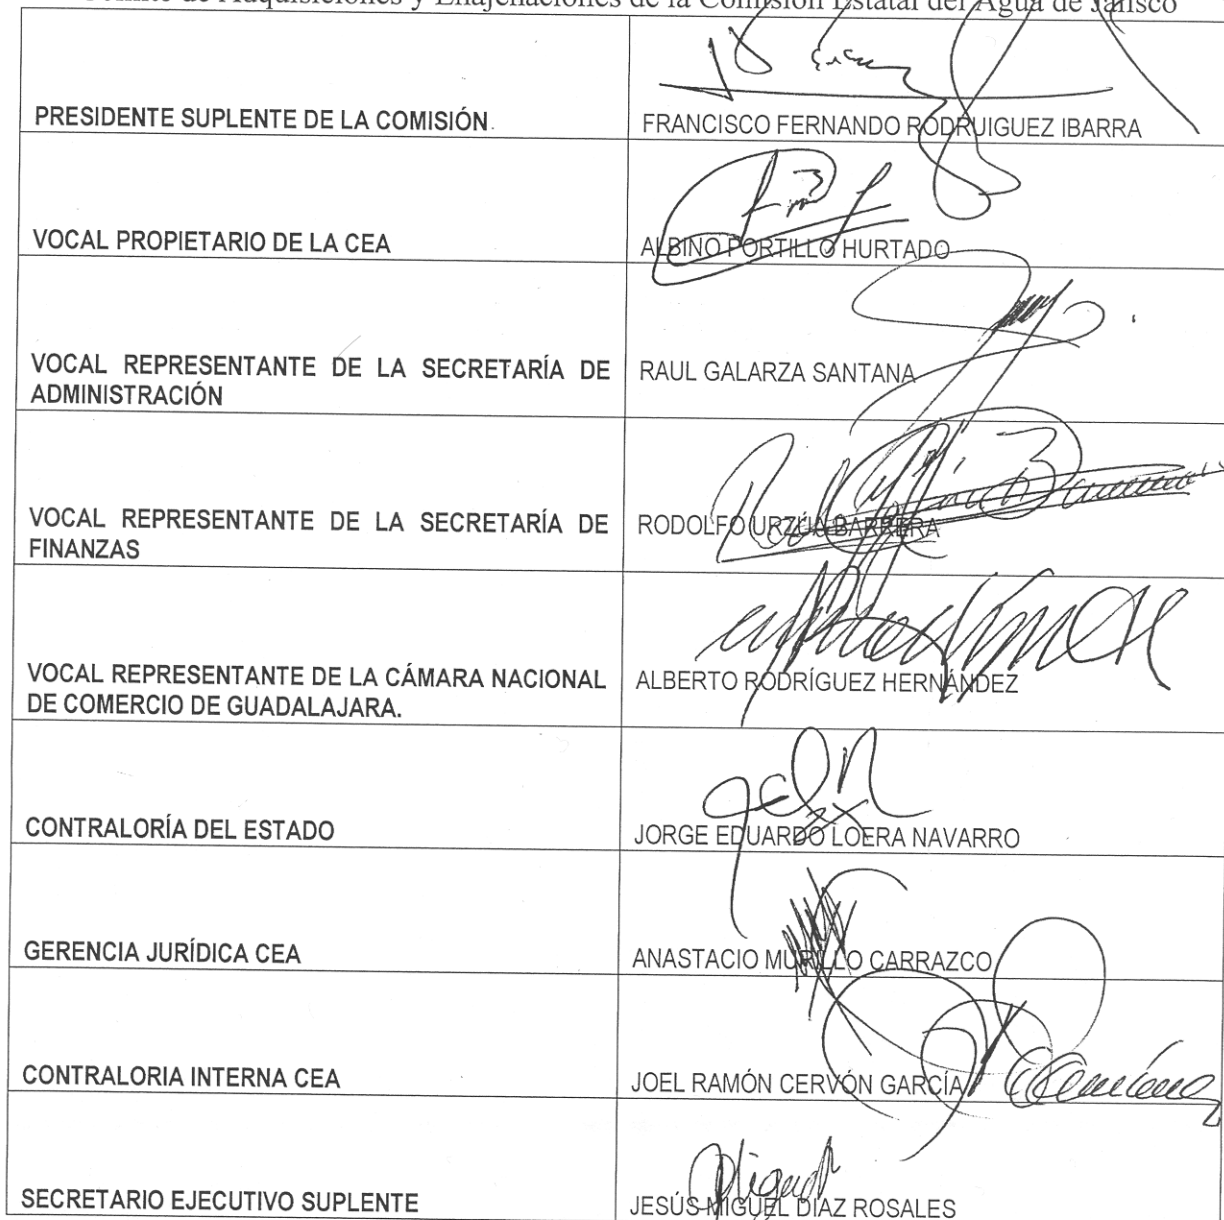 Comité de Adquisiciones y Enajenaciones de la Comisión Estatal del Agua de Jalisco
PRESIDENTE SUPLENTE DE LA COMISIÓN.
FRANCISCO FERNANDO RODRUIGUEZ IBARRA
VOCAL PROPIETARIO DE LA CEA
ALBINO PORTILLO HURTADO
VOCAL REPRESENTANTE DE LA SECRETARÍA DE
ADMINISTRACIÓN
RAUL GALARZA SANTANA
VOCAL REPRESENTANTE DE LA SECRETARÍA DE
FINANZAS
RODOLFO URZÚA BARRERA
VOCAL REPRESENTANTE DE LA CÁMARA NACIONAL
DE COMERCIO DE GUADALAJARA.
ALBERTO RODRÍGUEZ HERNÁNDEZ
CONTRALORÍA DEL ESTADO
JORGE EDUARDO LOERA NAVARRO
GERENCIA JURÍDICA CEA
ANASTACIO MURILLO CARRAZCO
CONTRALORIA INTERNA CEA
JOEL RAMÓN CERVÓN GARCÍA
SECRETARIO EJECUTIVO SUPLENTE
JESÚS MIGUEL DIAZ ROSALES